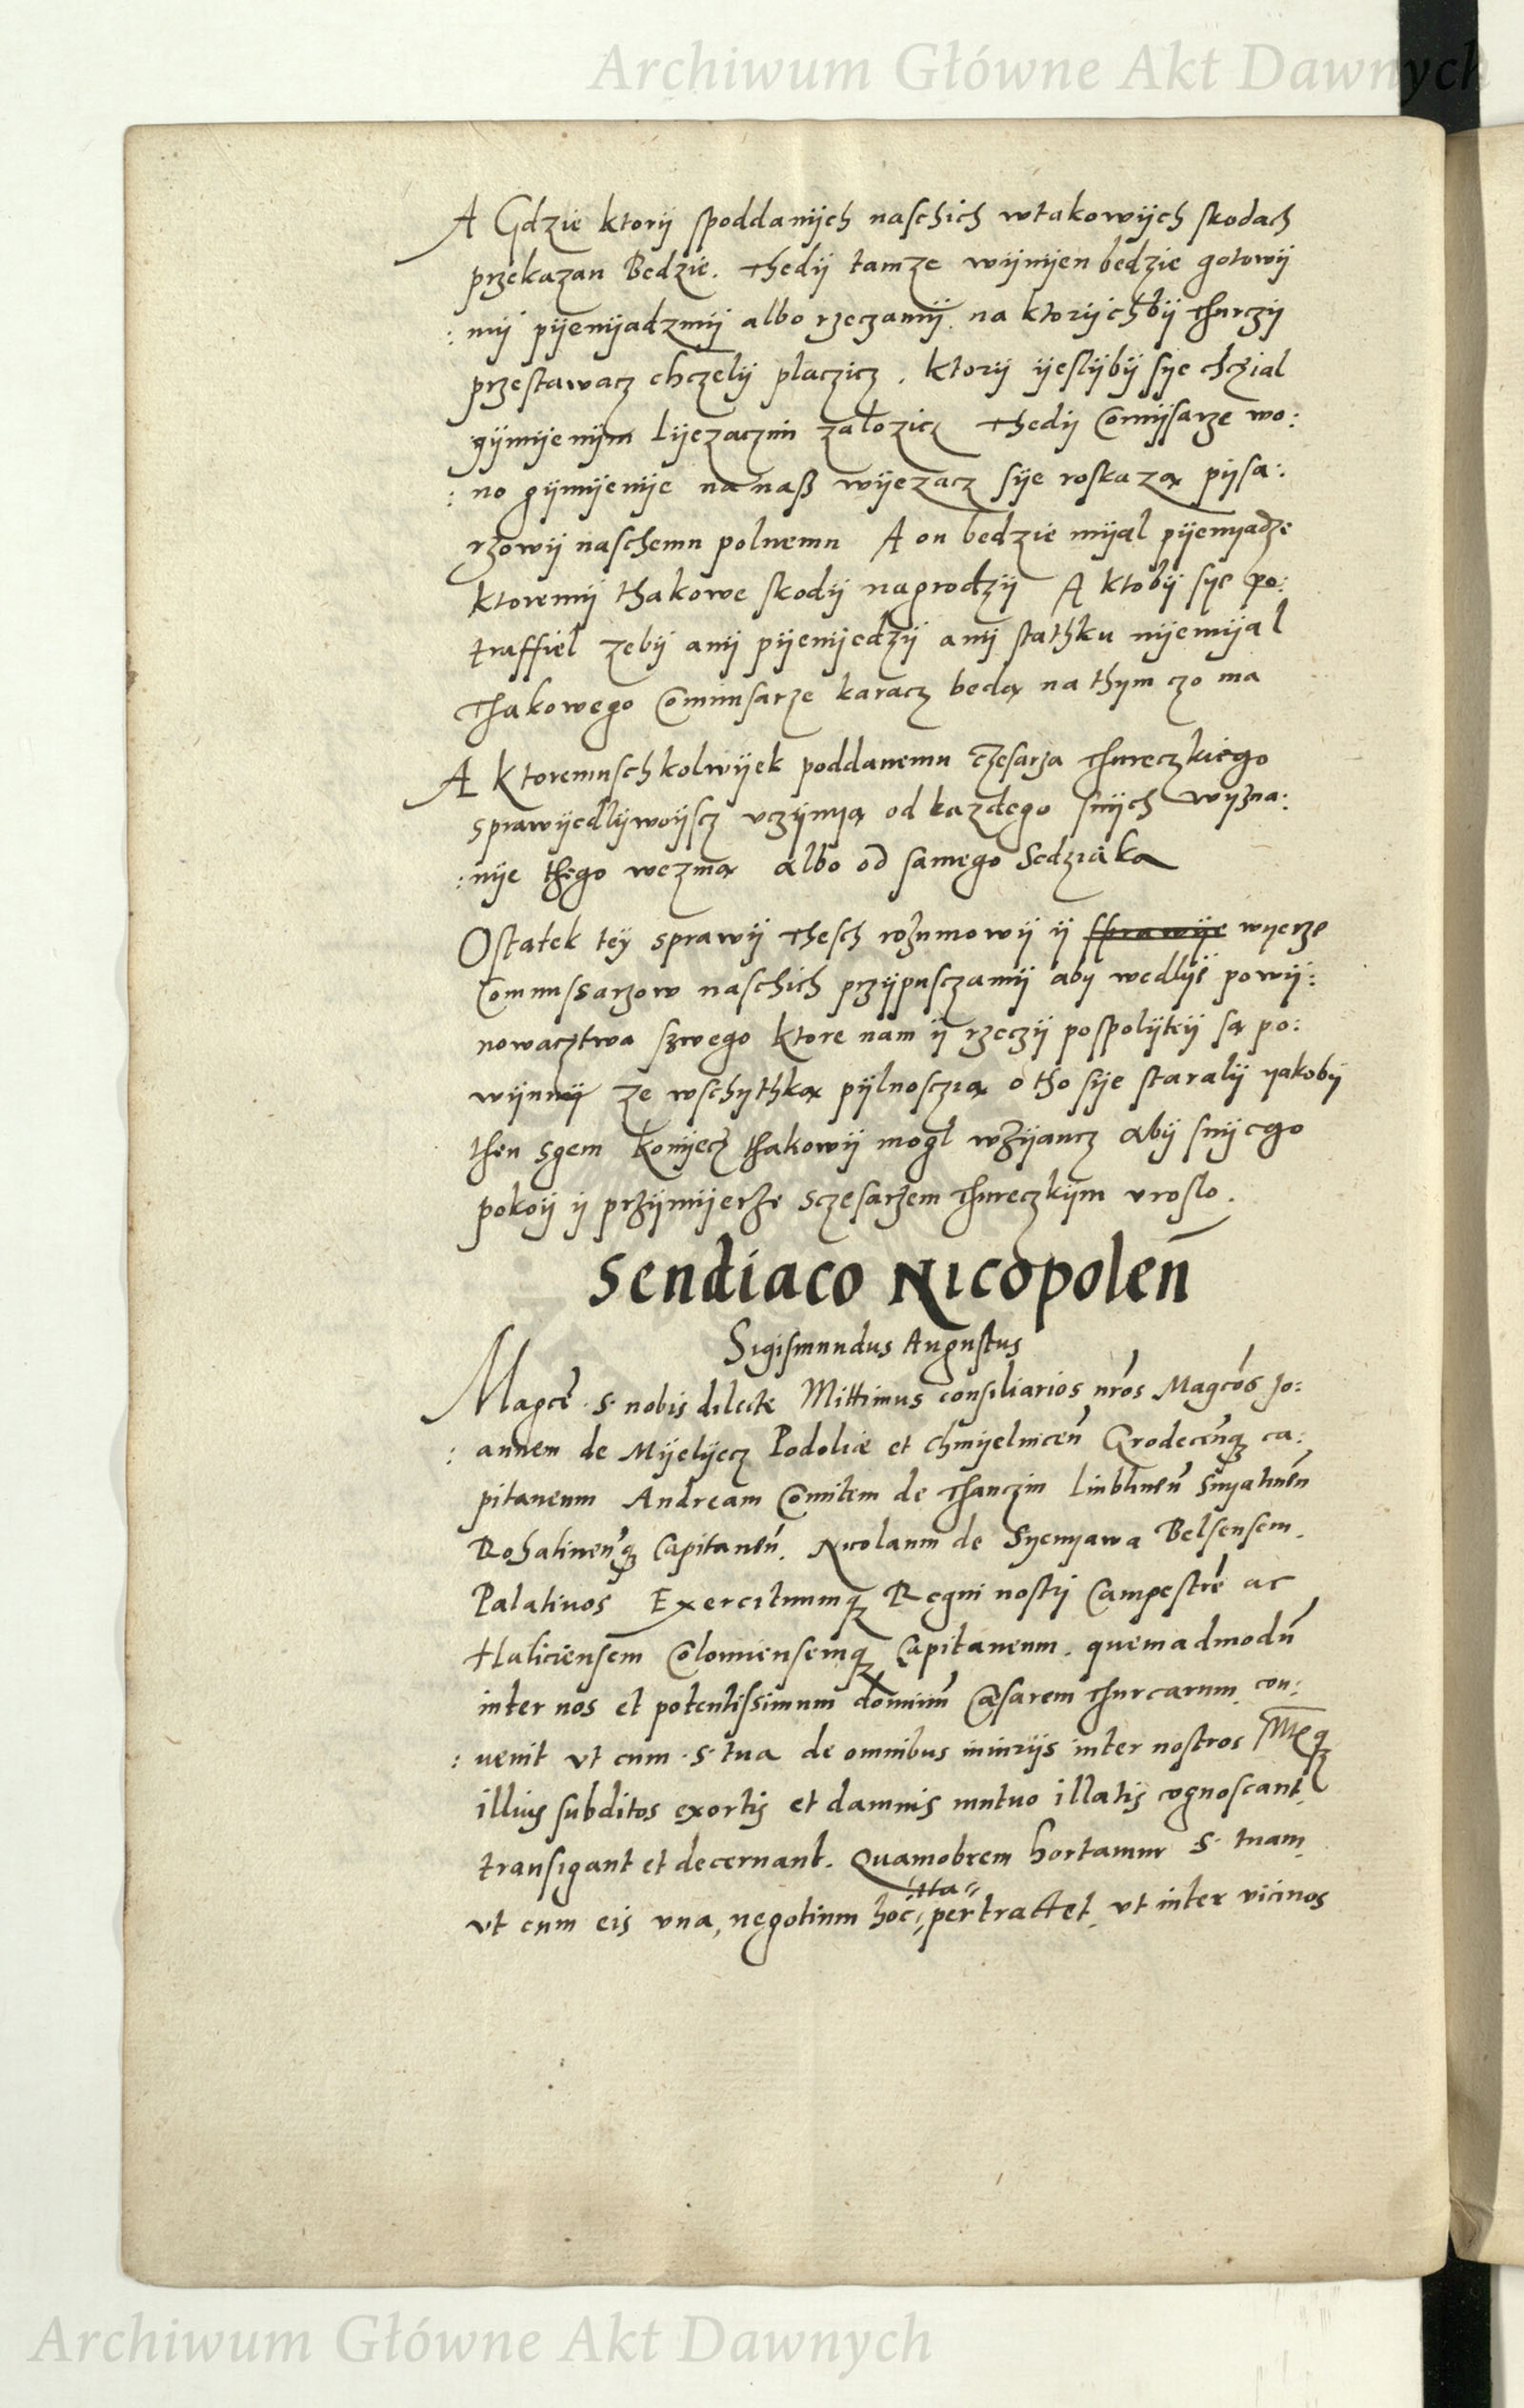 Archiwum Główne Akt Dawnych
A Gdzie ktorij spoddanijch naschich wtakowijch skodach
przekazan Bedzie. Thedij tamze wijnijen bedzie gotowij
: mij pijenijadzmij albo rzeczamij na ktorijchbij Thurczij
przestawacz chczelij placzicz. ktorij ijeslijbij sije chczial
gijmijenijm Lijezacznim zalozicz Thedij Comijsarze wo:
: no gijmijenije na naß wijezacz sije roskazą pijsa:
rzowij naschemu polnemu A on bedzie mijal pijenijadze
ktoremij thakowe skodij nagrodzij A ktobij sije po:
traffiel zebij anij pijenijedzij anij stathku nijemijal
Thakowego Comimsarze karacz bedą na thym czo ma
A Ktoremuschkolwijek poddanemu Czesarza Thureczkiego
sprawijedlijwoijscz uczijnią od kazdego snijch wyzna:
: nije thego wezmą albo od samego Sedziaka
Ostatek tey sprawij Thesch rozumowij ij sprawije wyerze
Commissarzow naschich przijpusczamij aby wedlijs powij:
nowacztwa szwego ktore nam ij rzeczij pospolijteij są po:
wijnnij ze wschythką pijlnosczią o tho sije staralij yakobij
then sgem konijecz thakowij mogl wzijancz abij snijego
pokoij ij przijmijerze sczesarzem Thureczkijm uroslo.
Sendiaco Nicopolen̄
Sigismundus Augustus
Magce̅ .S. nobis dilecte Mittimus consiliarios nr̄os Magco̅s Jo:
: annem de Mijelijecz Podolie et Chmijelnicen̄ Grodecen̄q ca:
pitaneum Andream Comitem de Thanczin Lublinen̄ Snyatinen̄
Rohatinen̄q Capitaneu̅. Nicolaum de Syenyawa Belsensem
Palatinos Exercituumq Regni nostri Campestre̅ ac
Haliciensem Colomiensemq Capitaneum. quemadmodu̅
inter nos et potentissimum dominu̅ Cæsarem Thurcarum con:
: uenit ut cum .S. tua de omnibus iniurijs inter nostros Mtisq
illius subditos exortis et damnis mutuo illatis cognoscant,
transigant et decernant. Quamobrem hortamur S. tuam
ut cum eis una, negotium hoc ita pertractet, ut inter vicinos
Archiwum Główne Akt Dawnych